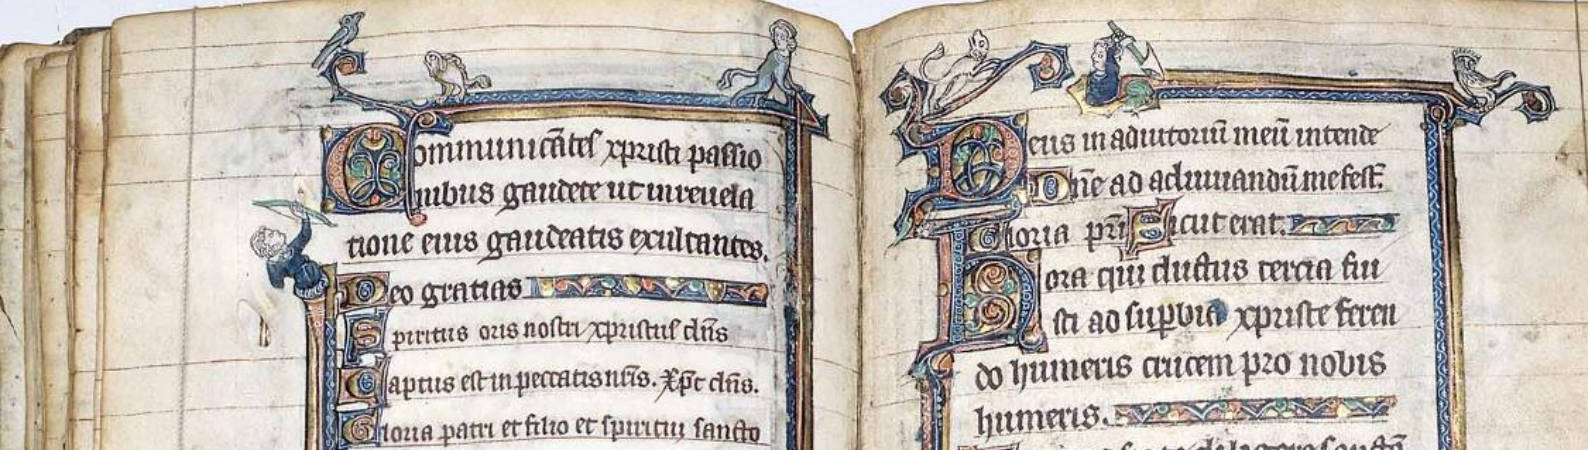 Communicātes xpristi passio
nibus gaudete ut in revela
tione eius gaudeatis exultantes.
Deo gratias
Spiritus oris nostri xpristus dn̄s
Captus est in peccatis nr̄is. Xp̄c dn̄s.
Gloria patri et filio et spiritui sancto
Deus in adiutoriū meū intende
Dn̄e ad adiuvandū me fest̄.
Gloria pr̄i Sicut erat.
Hora qui ductus tercia fui
sti ad sup̄bia xpriste feren
do humeris crucem pro nobis
humeris.